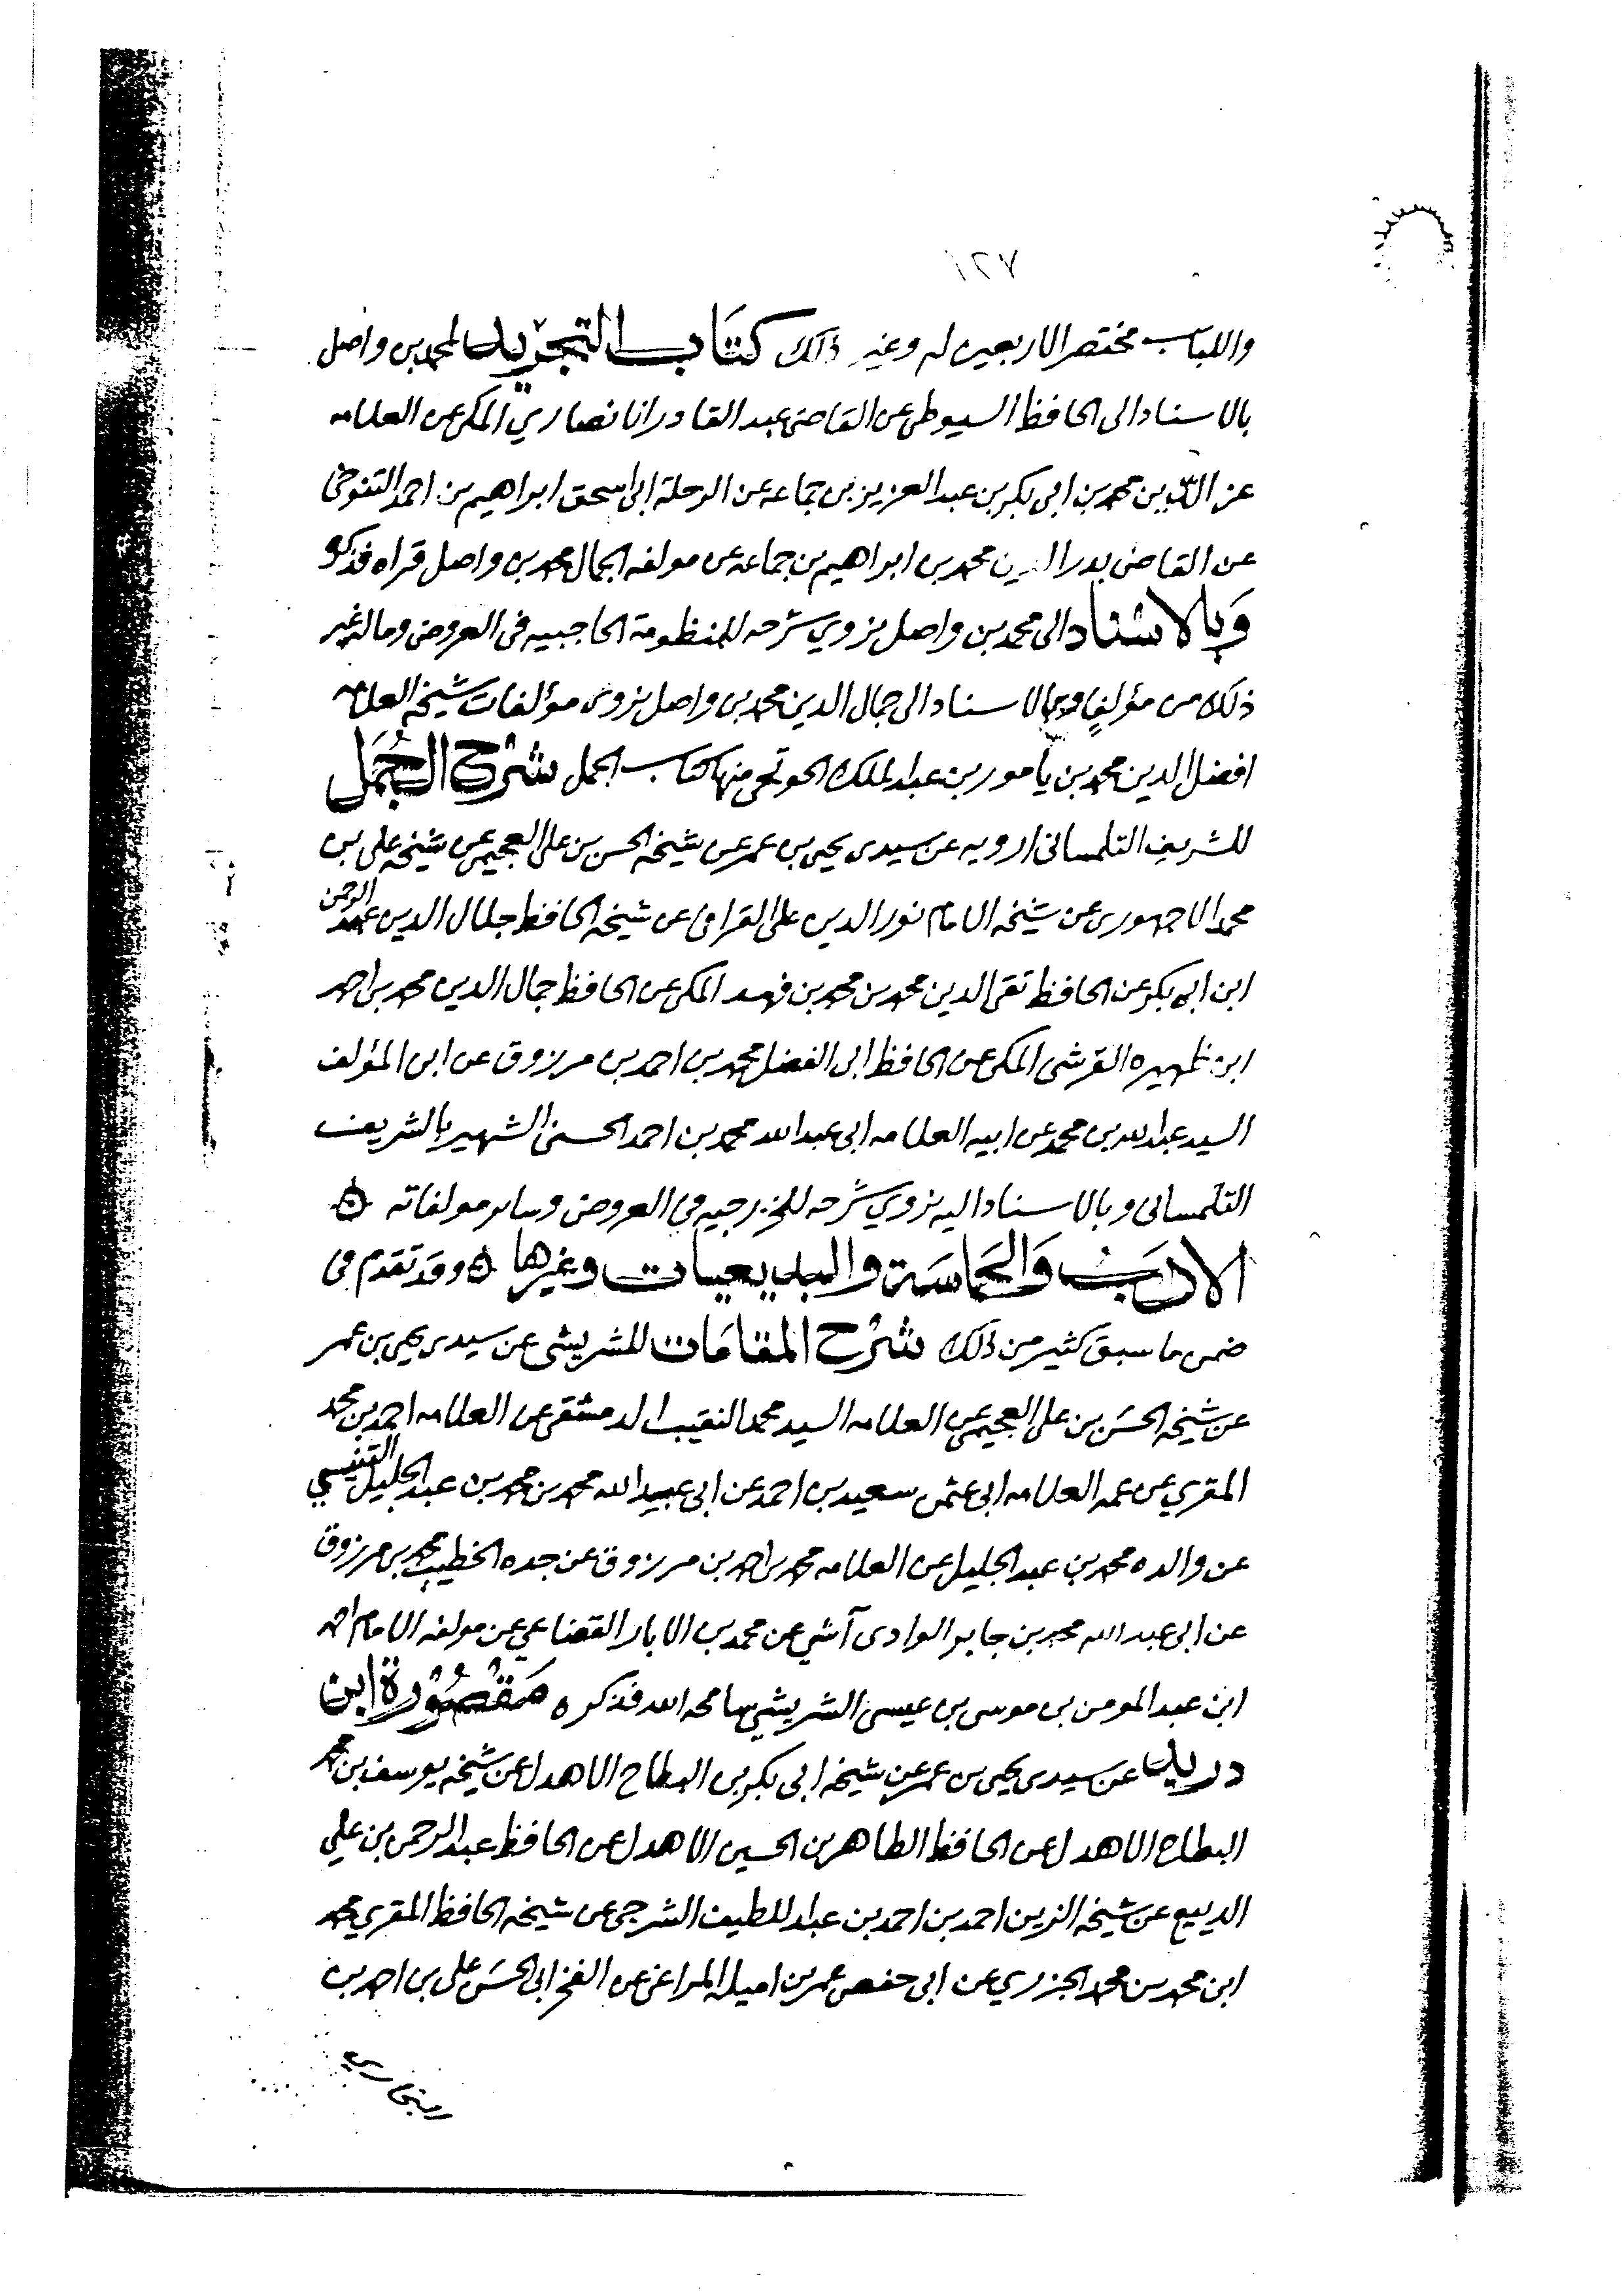 ٧٢١
واللباب مختصر الاربعين له وغير ذلك كتاب التجريد لمحمد بن واصل
بالاسناد الى الحافظ السيوطي عن القاضي عبد القادر انا نصاري المكي عن العلامه
عز الدين بن محمد بن ابي بكر بن عبد العزيز بن جماعه عن الرحلة ابي اسحق ابراهيم بن احمد التنوخي
عن القاضي بدر الدين محمد بن ابراهيم بن جماعه عن مولفه الجمال محمد بن واصل قراه فذكره
وبالاسناد الى محمد بن واصل نروي شرحه للمنظومة الحاجبيه في العروض وماله غير
ذلك من مؤلف وبالاسناد الى جمال الدين محمد بن واصل نروي مؤلفات شيخه العلامه
افضل الدين محمد بن يامور بن عبد الملك الحونجي منها كتاب الجمل شرح الجمل
للشريف التلمساني ارويه عن سيدي يحيى بن عمر عن شيخه الحسن بن علي العجيمي عن شيخه علي بن
محمد الاجهوري عن شيخه الامام نور الدين علي القرافي عن شيخه الحافظ جلال الدين عبد الرحمن
ابن ابي بكر عن الحافظ تقي الدين محمد بن محمد بن فهد المكي عن الحافظ جمال الدين محمد بن احمد
ابن ظهيره القرشي المكي عن الحافظ ابي الفضل محمد بن احمد بن مرزوق عن ابن المؤلف
السيد عبد الله بن محمد عن ابيه العلامه ابي عبد الله محمد بن احمد الحسني الشهير بالشريف
التلمساني وبالاسناد اليه نروي شرحه للخزرجيه في العروض وساير مولفاته ه
الادب والحماسة والبديعيات وغيرها ه وقد تقدم في
ضمن ما سبق كثير من ذلك شرح المقامات للشريشي عن سيدي يحيى بن عمر
عن شيخه الحسن بن علي العجيمي عن العلامه السيد محمد النقيب الدمشقي عن العلامه احمد بن محمد
المقري عن عمه العلامه ابي عثمن سعيد بن احمد عن ابي عبيد الله محمد بن محمد بن عبد الجليل التنيسي
عن والده محمد بن عبد الجليل عن العلامه محمد بن احمد بن مرزوق عن جده الخطيب محمد بن مرزوق
عن ابي عبد الله محمد بن جابر الوادي آشي عن محمد بن الابار القضاعي عن مولفه الامام احمد
ابن عبد المومن بن موسى بن عيسى الشريشي سامحه الله فذكره مقصورة ابن
دريد عن سيدي يحيى بن عمر عن شيخه ابي بكر بن البطاح الاهدل عن شيخه يوسف بن محمد
البطاح الاهدل عن الحافظ الطاهر بن الحسين الاهدل عن الحافظ عبد الرحمن بن علي
الديبع عن شيخه الزين احمد بن احمد بن عبد اللطيف الشرجي عن شيخه الحافظ المقري محمد
ابن محمد بن محمد الجزري عن ابي حفص عمر بن اميلة المراغي عن الفخر ابي الحسن علي بن احمد بن